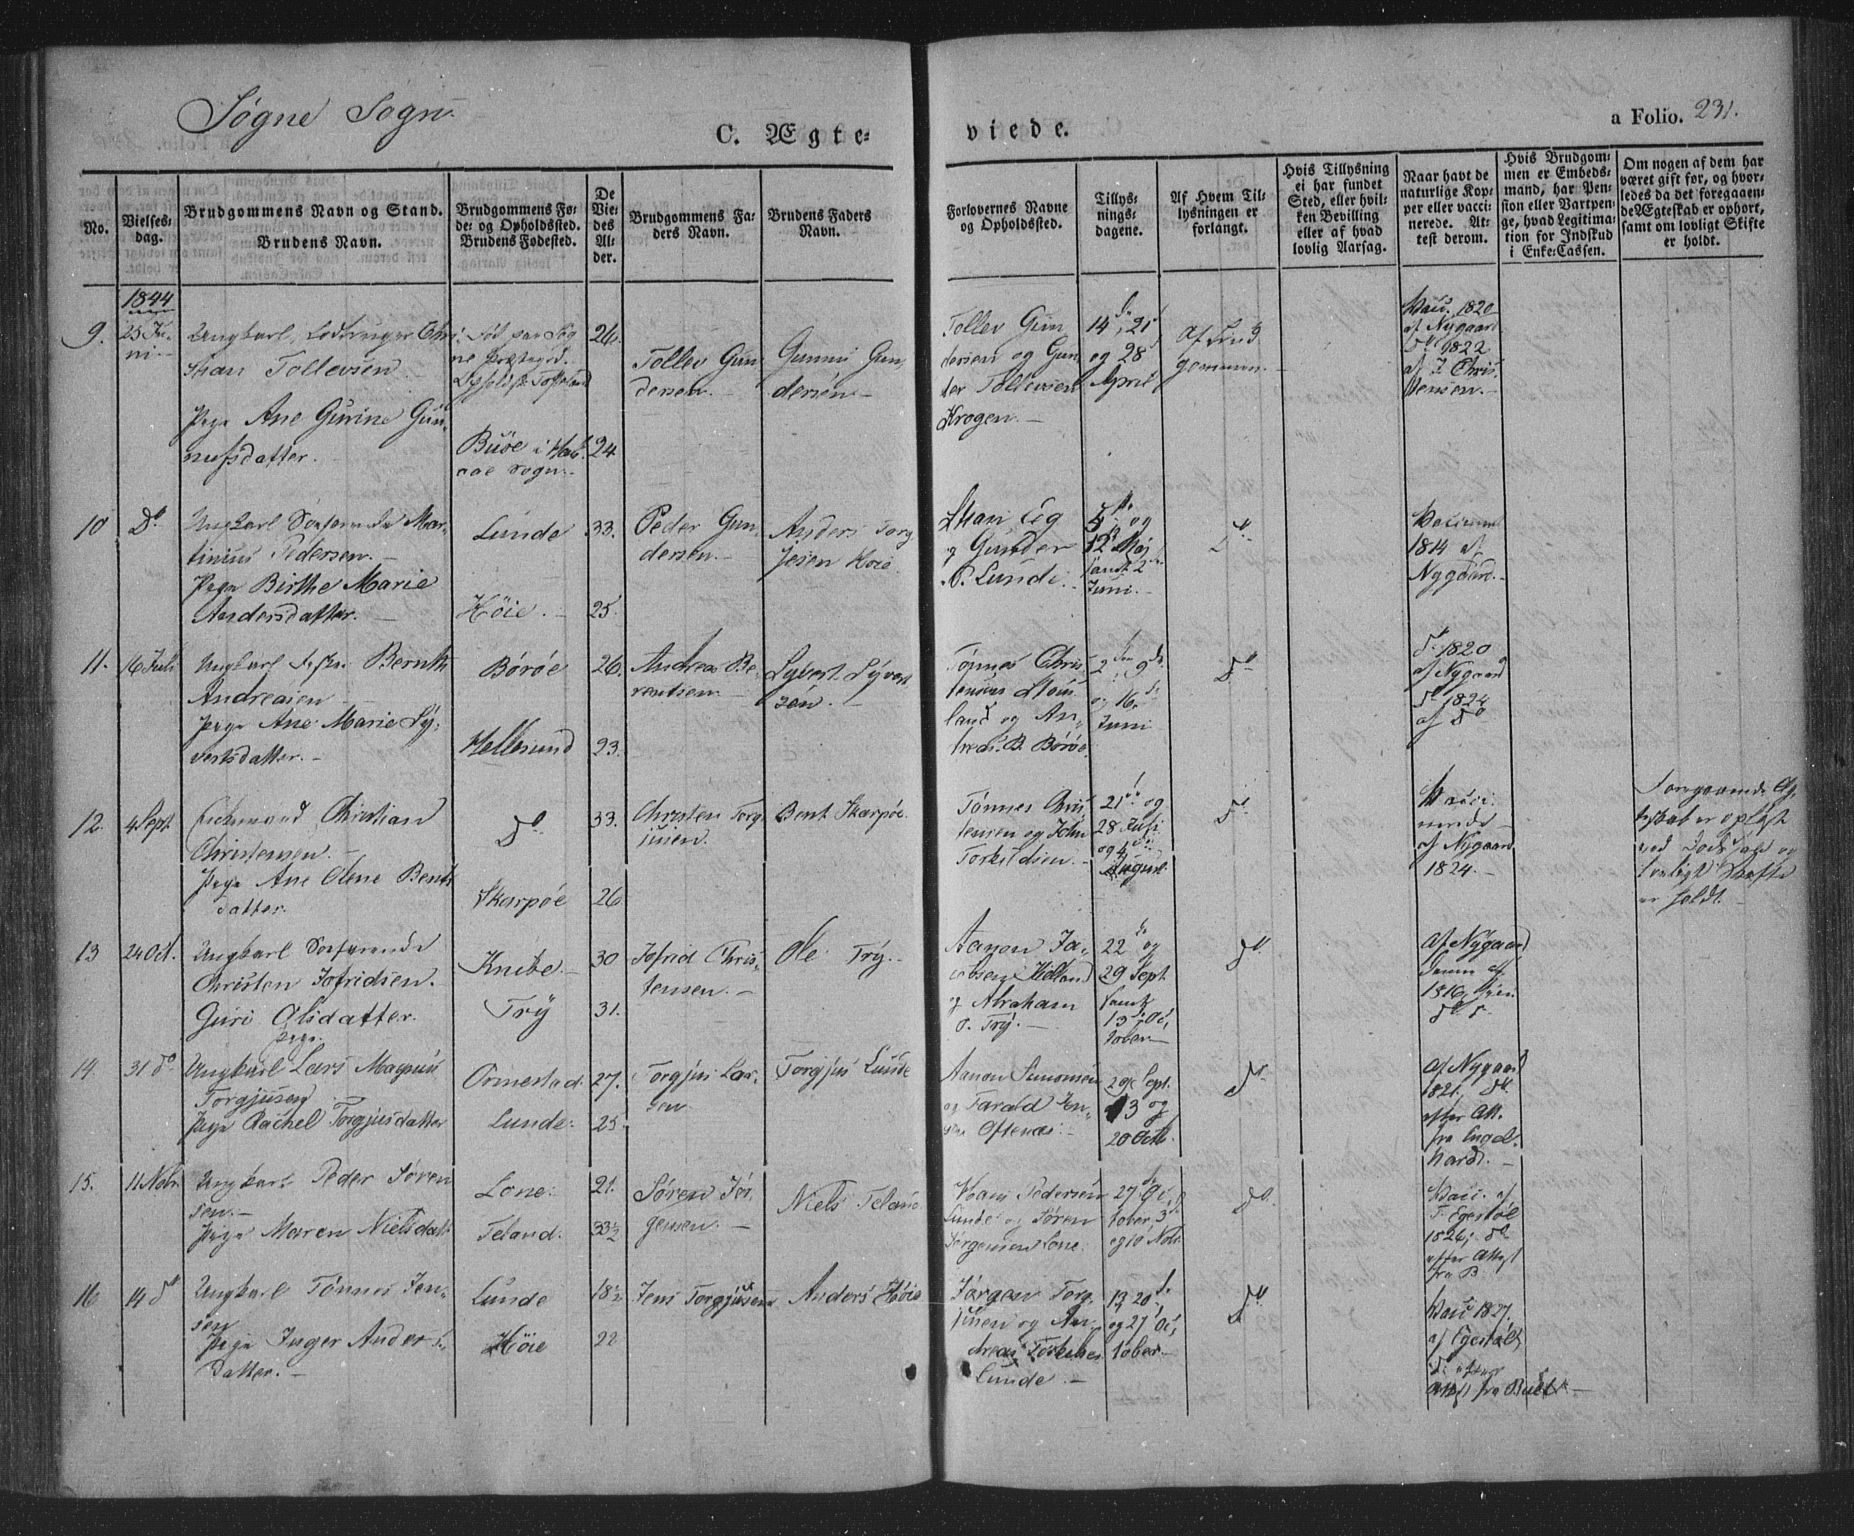 Søgne Sogn
C. Ægte=
viede.
a Folio. 231.
No.
Vielses-
dag.
Brudgommens Navn og Stand.
Brudens Navn.
Brudgommens Fø-
de- og Opholdssted.
Brudens Fødested.
De
Vie-
des
Al-
der.
Brudgommens Fa-
ders Navn.
Brudens Faders
Navn.
Forlovernes Navne
og Opholdssted.
Tillys-
nings-
dagene.
Af Hvem Til-
lysningen er
forlangt.
Hvis Tillysning
ei har fundet
Sted, eller hvil-
ken Bevilling
eller af hvad
lovlig Aarsag.
Naar havt de
naturlige Kop-
per eller vacci-
nerede. At-
test derom.
Hvis Brudgom-
men er Embeds-
mand, har Pen-
sion eller Vartpen-
ge, hvad Legitima-
tion for Indskud
i Enke-Cassen.
Om nogen af dem har
været gift før, og hvor-
ledes da det foregaaen-
de Ægteskab er ophørt,
samt om lovligt Skifte
er holdt.
1844
9.
25 Ju-
ni
Ungkarl
Tollevsen
Pige Ane Gurine Gun-
nufsdatter.
Buøe i
Sogn
26.
24
Tollev Gun-
dersen.
Gunnu Gun-
dersen
Tollev Gun
dersen og Gun
der Tollevsen
Krogen.
14, 21
og 28
April
Vacc. 1820
af Nygaard
do 1822
af J. Chris-
tensen.
10
do
Ungkarl Søefarende Mar-
tinius Pedersen.
Pige Birthe Marie
Andersdatter.
Lunde
Høie.
33.
25.
Peder Gun-
dersen.
Anders Torg
jesen Høie.
og Gunder
P. Lunde.
5 og
12 Maj
samt 2
Juni.
do
1814 af
Nygaard.
11.
16 Juli
Ungkarl Bernth
Andreasen
Pige Ane Marie Sy-
vertsdatter.
Børøe
Hellesund
26.
23.
Andreas Be-
rentsen
Syvert Syvert
sen.
Tønnes Chris-
tensen
land og An-
dreas B. Børøe
2, 9
og 16.
Juni
do
do 1820
af Nygaard
do 1824
af do
12.
4 Sept
Enkemand Christian
Christensen.
Pige Ane Olene Bents
datter.
do
Skarpøe
33.
26
Christen Torg
jusen.
Bent Skarpøe.
Tønnes Chris
tensen og John
Torkildsen.
21 og
28 Juli
og 4
August
do
Vacci-
nerede
af Nygaard
1824.
Foregaaende Æg-
teskab er opløst
ved Dødsfald og
lovligt Skifte
er holdt.
13
24 Oct.
Ungkarl Søefarende
Christen Jofridsen.
Guri Olsdatter.
Pige
Knibe
Try
30
31.
Jofrid Chris-
tensen.
Ole Try.
Aanon Ja-
cobsen
og Abraham
O. Try.
22 og
29 Sept.
samt
13 Oc-
tober
do
Af Nygaard
1816,
14.
31 do
Ungkarl Lars Magnus
Torgjusen
Pige Rachel Torgjusdatter
Ormestad
Lunde
27.
25.
Torgjus Lar-
sen
Torgjus Lunde
Aanon Simonsen
og Tarald Jen-
sen Oftenæs.
29 Sept.
13 og
20 Octb.
do
Af Nygaard
1821, do
efter Att.
fra Engel-
hardt.
15.
11 Nobr.
Ungkarl Peder Søren
sen.
Pige Maren Nielsdatt
Lone
Teland.
21.
33½
Søren Jør-
gensen.
Niels Teland
Pedersen
Lunde og Søren
Jørgensen Lone.
27 Oc-
tober, 3
og 10 Nob.
do
Vacc. af
T. Egestøl
1826, do
efter Attest
fra B.
16
14 do
Ungkarl Tønnes Jen-
sen
Pige Inger Anders-
datter.
Lunde
Høie
18½
22
Jens Torgjusen
Anders Høie
Jørgen Torg-
jusen og An-
dreas
Lunde.
13, 20
og 27 Oc-
tober
do
Vacc 1827.
af Egestøl,
do efter
Attest fra